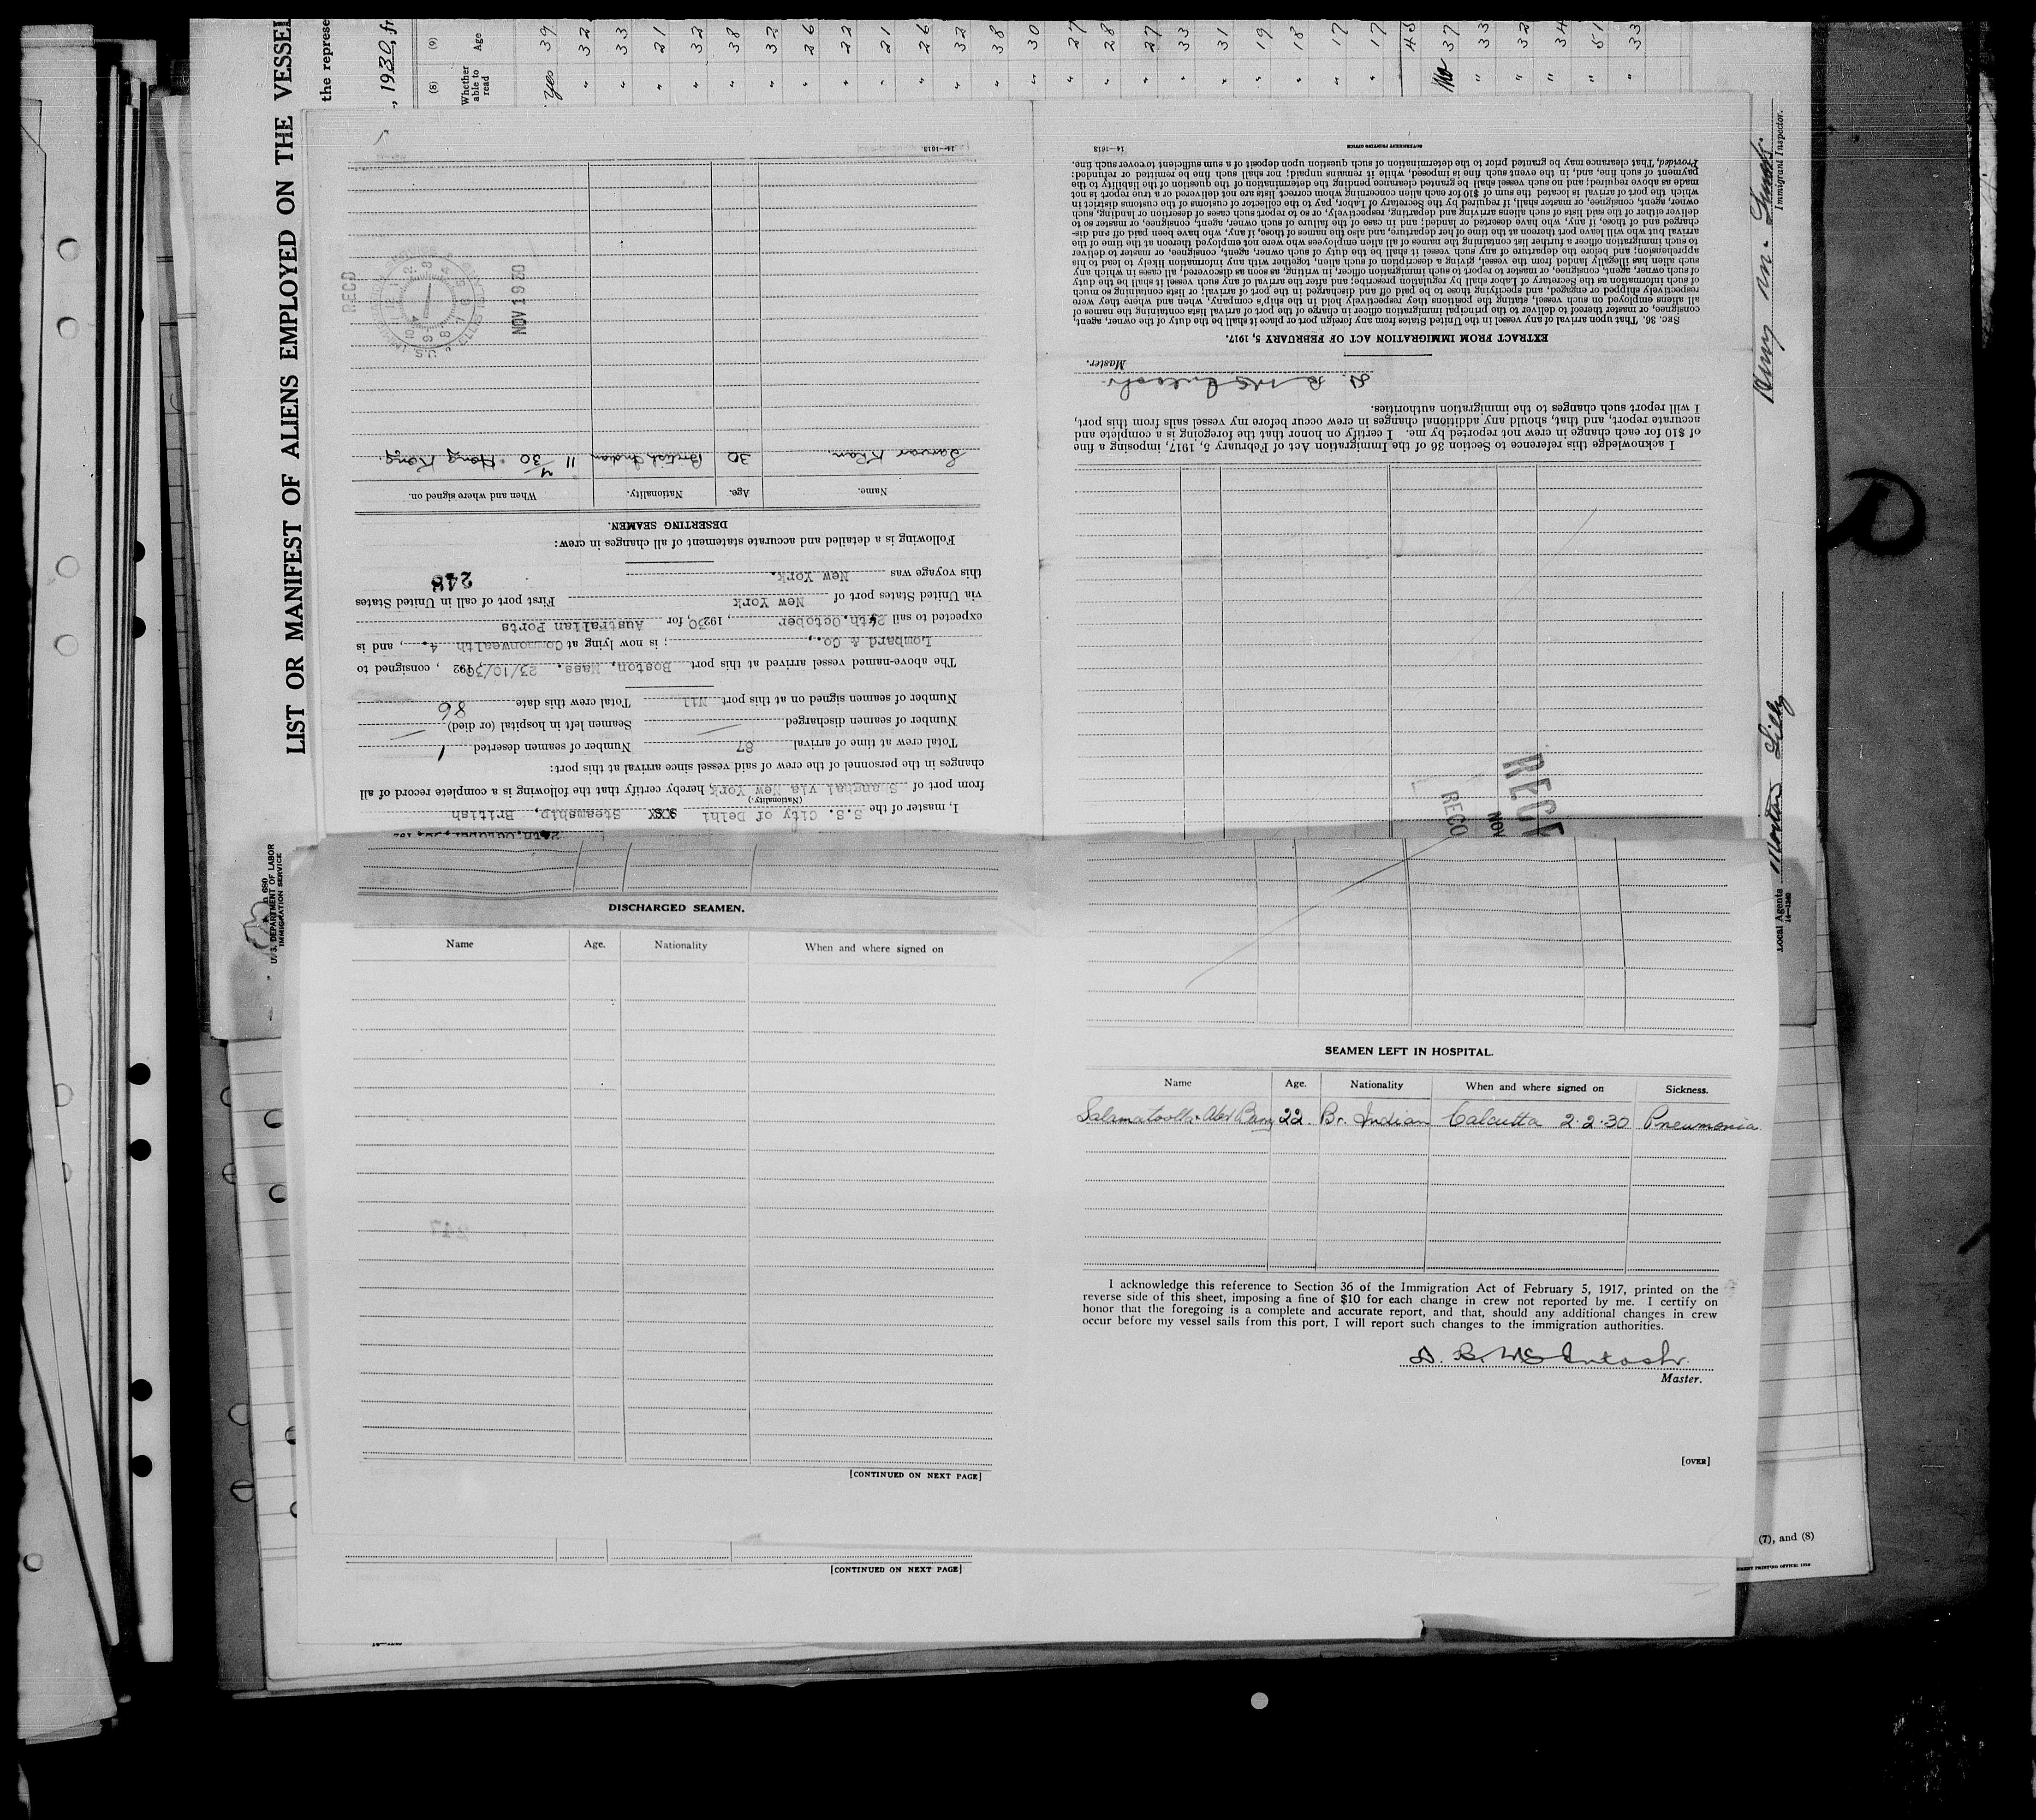 LIST OR MANIFEST OF ALIENS EMPLOYED ON THE VESSEL
the represe
, 1930, fr
(8) (9)
Whether able to read Age
yes 39
" 32
" 33
" 21
" 32
" 38
" 32
" 26
" 22
" 21
" 26
" 32
" 38
" 30
" 27
" 28
" 27
" 33
" 31
" 19
" 18
" 17
" 17
" 45
No 37
" 33
" 32
" 34
" 51
" 33
680
U. S. DEPARTMENT OF LABOR
IMMIGRATION SERVICE
Immigrant Inspector.
Local Agents
14—1240
I, master of the S.S. City of Delhi Steamship, British
(Nationality.)
from port of Shanghai via New York, hereby certify that the following is a complete record of all
changes in the personnel of the crew of said vessel since arrival at this port:
Total crew at time of arrival 87 Number of seamen deserted 1
Number of seamen discharged — Seamen left in hospital (or died) —
Number of seamen signed on at this port Nil Total crew this date 86
The above-named vessel arrived at this port Boston, Mass. 23/10/30, 192 , consigned to
Lombard & Co., ; is now lying at Commonwealth 4. , and is
expected to sail 24th. October , 1930, for Australian Ports
via United States port of New York First port of call in United States
this voyage was New York.
248
Following is a detailed and accurate statement of all changes in crew:
DESERTING SEAMEN.
Name. Age. Nationality. When and where signed on.
Sarwar Khan. 30 British Indian 11/4/30 Hong Kong.
NOV 1 9 30
RECD
14—1613
RECE
NOV
RECD
I acknowledge this reference to Section 36 of the Immigration Act of February 5, 1917, imposing a fine
of $10 for each change in crew not reported by me. I certify on honor that the foregoing is a complete and
accurate report, and that, should any additional changes in crew occur before my vessel sails from this port,
I will report such changes to the immigration authorities.
D. R. McIntosh
Master.
EXTRACT FROM IMMIGRATION ACT OF FEBRUARY 5, 1917.
SEC. 36. That upon arrival of any vessel in the United States from any foreign port or place it shall be the duty of the owner, agent,
consignee, or master thereof to deliver to the principal immigration officer in charge of the port of arrival lists containing the names of
all aliens employed on such vessel, stating the positions they respectively hold in the ship's company, when and where they were
respectively shipped or engaged, and specifying those to be paid off and discharged in the port of arrival; or lists containing so much
of such information as the Secretary of Labor shall by regulation prescribe; and after the arrival of any such vessel it shall be the duty
of such owner, agent, consignee, or master to report to such immigration officer, in writing, as soon as discovered, all cases in which any
such alien has illegally landed from the vessel, giving a description of such alien, together with any information likely to lead to his
apprehension; and before the departure of any such vessel it shall be the duty of such owner, agent, consignee, or master to deliver
to such immigration officer a further list containing the names of all alien employees who were not employed thereon at the time of the
arrival but who will leave port thereon at the time of her departure, and also the names of those, if any, who have been paid off and dis-
charged and of those, if any, who have deserted or landed; and in case of the failure of such owner, agent, consignee, or master so to
deliver either of the said lists of such aliens arriving and departing, respectively, or so to report such cases of desertion or landing, such
owner, agent, consignee, or master shall, if required by the Secretary of Labor, pay to the collector of customs of the customs district in
which the port of arrival is located the sum of $10 for each alien concerning whom correct lists are not delivered or a true report is not
made as above required; and no such vessel shall be granted clearance pending the determination of the question of the liability to the
payment of such fine, and, in the event such fine is imposed, while it remains unpaid; nor shall such fine be remitted or refunded:
Provided, That clearance may be granted prior to the determination of such question upon deposit of a sum sufficient to cover such fine.
14—1613 GOVERNMENT PRINTING OFFICE
DISCHARGED SEAMEN.
Name Age. Nationality When and where signed on
[CONTINUED ON NEXT PAGE]
[CONTINUED ON NEXT PAGE]
SEAMEN LEFT IN HOSPITAL.
Name Age. Nationality When and where signed on Sickness.
22. Br. Indian Calcutta 2.2.30 Pneumonia
I acknowledge this reference to Section 36 of the Immigration Act of February 5, 1917, printed on the
reverse side of this sheet, imposing a fine of $10 for each change in crew not reported by me. I certify on
honor that the foregoing is a complete and accurate report, and that, should any additional changes in crew
occur before my vessel sails from this port, I will report such changes to the immigration authorities.
D. R. McIntosh
Master.
[OVER]
(7), and (8)